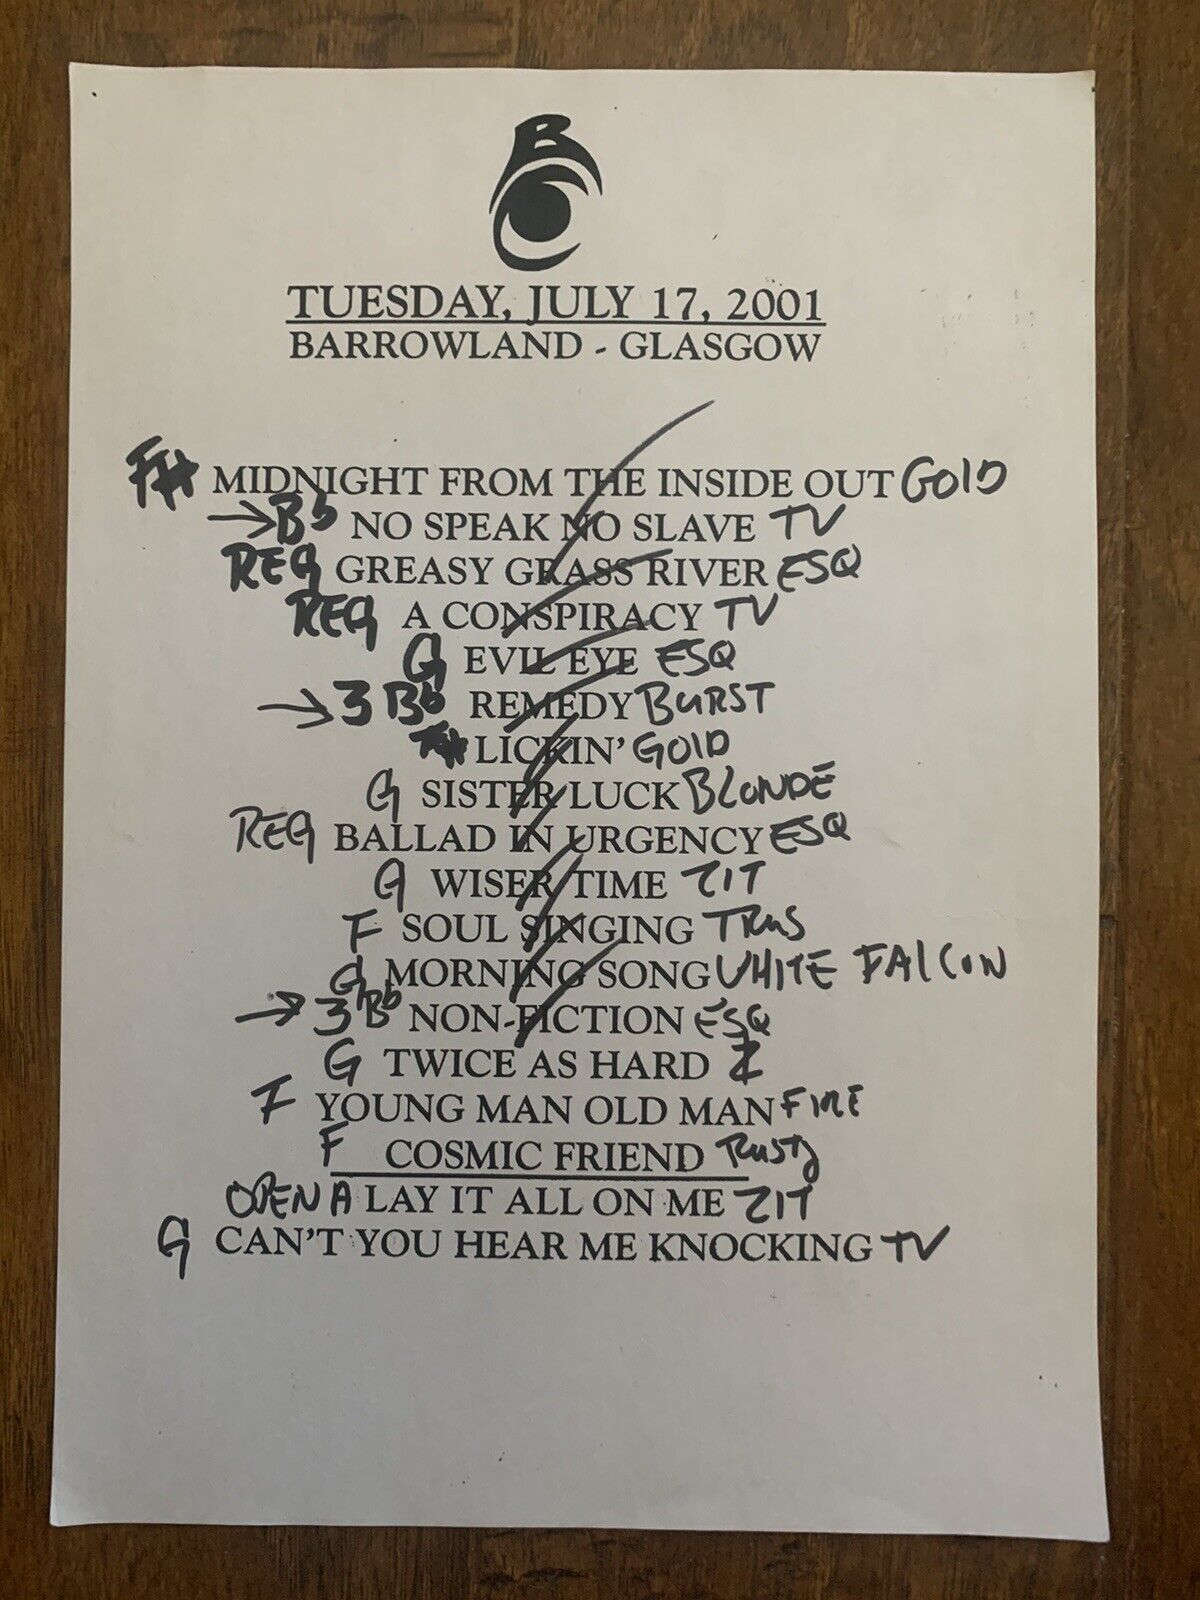 B C
TUESDAY, JULY 17, 2001
BARROWLAND - GLASGOW
MIDNIGHT FROM THE INSIDE OUT GOLD
→ Bb NO SPEAK NO SLAVE TV
REG GREASY GRASS RIVER ESQ
REG A CONSPIRACY TV
G EVIL EYE ESQ
→ 3 Bb REMEDY BURST
LICKIN' GOLD
G SISTER LUCK BLONDE
REG BALLAD IN URGENCY ESQ
G WISER TIME ZIT
F SOUL SINGING
G MORNING SONG WHITE FALCON
→ 3 Bb NON-FICTION ESQ
G TWICE AS HARD Z
F YOUNG MAN OLD MAN
F COSMIC FRIEND RUSTY
OPEN A LAY IT ALL ON ME ZIT
G CAN'T YOU HEAR ME KNOCKING TV